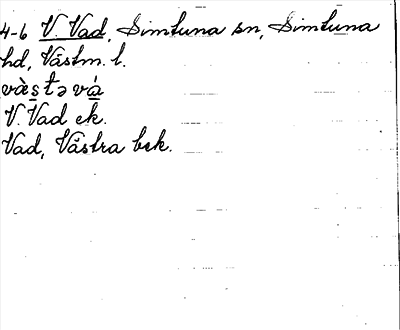 4-6 V. Vad, Simtuna sn, Simtuna
hd, Västm. l.
vàstə vá
V. Vad ek.
Vad, Västra bek.